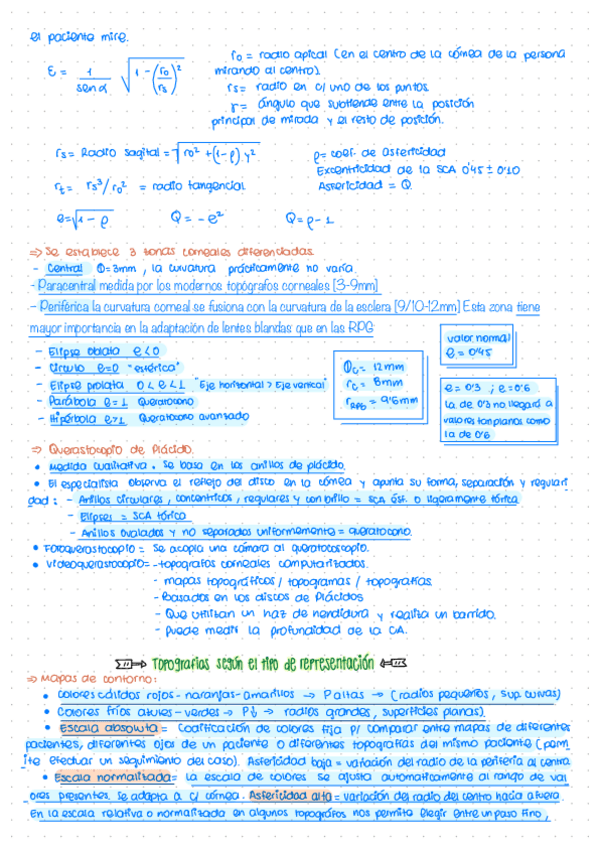 el paciente mire.
ε = 1/sen α √(1 - (ro/rs)²)
ro = radio apical (en el centro de la córnea de la persona
mirando al centro).
rs = radio en c/ uno de los puntos.
γ = ángulo que subtiende entre la posición
principal de mirada y el resto de posición.
rs = Radio sagital = √ro² + (1-ρ).y²
ρ= coef. de asfericidad
Excentricidad de la SCA 0'45 ± 0'10
Asfericidad = Q
rt = rs³/ro² = radio tangencial
e=√1-ρ
Q = -e²
Q= ρ-1
⇒ Se establece 3 zonas corneales diferenciadas.
- Central Ø=3mm, la curvatura prácticamente no varía.
- Paracentral medida por los modernos topógrafos corneales [3-9mm]
- Periférica la curvatura corneal se fusiona con la curvatura de la esclera [9/10-12mm] Esta zona tiene
mayor importancia en la adaptación de lentes blandas que en las RPG
- Elipse oblata e<0
- Círculo e=0 "esférica"
- Elipse prolata 0<e<1 "Eje horizontal > Eje vertical"
- Parábola e=1 Queratocono
- Hipérbola e>1 Queratocono avanzado
Øc= 12mm
rc = 8mm
rRPG = 9'6mm
valor normal
e = 0'45
e = 0'3 ; e = 0'6
La de 0'3 no llegará a
valores tan planos como
la de 0'6
⇒ Queratoscopio de Plácido.
• Medida cualitativa. Se basa en los anillos de plácido.
• El especialista observa el reflejo del disco en la córnea y apunta su forma, separación y regulari
dad: - Anillos circulares, concéntricos, regulares y con brillo = SCA esf. o ligeramente tórica
- Elipses = SCA tórica
- Anillos ovalados y no separados uniformemente = queratocono.
• Fotoqueratoscopio = Se acopla una cámara al queratoscopio.
• Videoqueratoscopio= - topógrafos corneales computarizados.
- mapas topográficos / topogramas / topografías
- Basados en los discos de Plácidos
- Que utilizan un haz de hendidura y realiza un barrido.
- Puede medir la profundidad de la CA.
Topografías según el tipo de representación
⇒ Mapas de contorno:
• Colores cálidos rojos-naranjas-amarillos → P altas → (radios pequeños, sup. curvas)
• Colores fríos azules-verdes → P↓ → radios grandes, superficies planas).
• Escala absoluta = Codificación de colores fija p/ comparar entre mapas de diferentes
pacientes, diferentes ojos de un paciente o diferentes topografías del mismo paciente (perm
ite efectuar un seguimiento del caso). Asfericidad baja = variación del radio de la periferia al centro
• Escala normalizada= La escala de colores se ajusta automáticamente al rango de val
ores presentes. Se adapta a c/ córnea. Asfericidad alta = variación del radio del centro hacia afuera.
En la escala relativa o normalizada en algunos topógrafos nos permite elegir entre un paso fino,